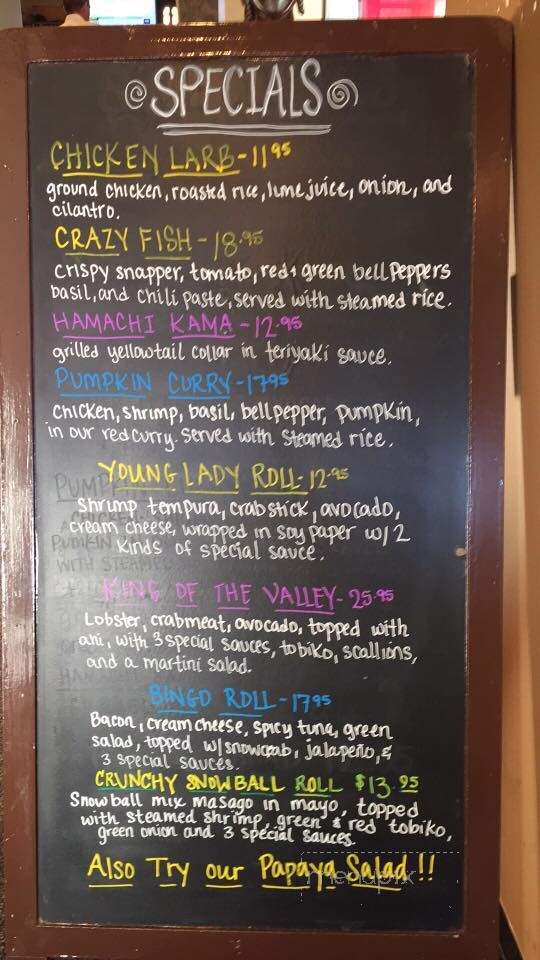 SPECIALS
CHICKEN LARB-11.95
ground chicken, roasted rice, lime juice, onion, and
cilantro.
CRAZY FISH-18.95
crispy snapper, tomato, red + green bell peppers
basil, and chili paste, served with steamed rice.
HAMACHI KAMA-12.95
grilled yellowtail collar in teriyaki sauce.
PUMPKIN CURRY-17.95
Chicken, shrimp, basil, bell pepper, pumpkin,
in our red curry. served with steamed rice.
YOUNG LADY ROLL-12.95
Shrimp tempura, crab stick, avocado,
cream cheese, wrapped in soy paper w/ 2
kinds of special sauce.
KING OF THE VALLEY-25.95
Lobster, crabmeat, avocado, topped with
ani, with 3 special sauces, tobiko, scallions,
and a martini salad.
BINGO ROLL-17.95
Bacon, cream cheese, spicy tuna, green
salad, topped w/ snowcrab, jalapeño, &
3 special sauces.
CRUNCHY SNOWBALL ROLL $13.95
Snowball mix masago in mayo, topped
with steamed shrimp, green & red tobiko,
green onion and 3 special sauces.
Also Try our Papaya Salad!!
menupix